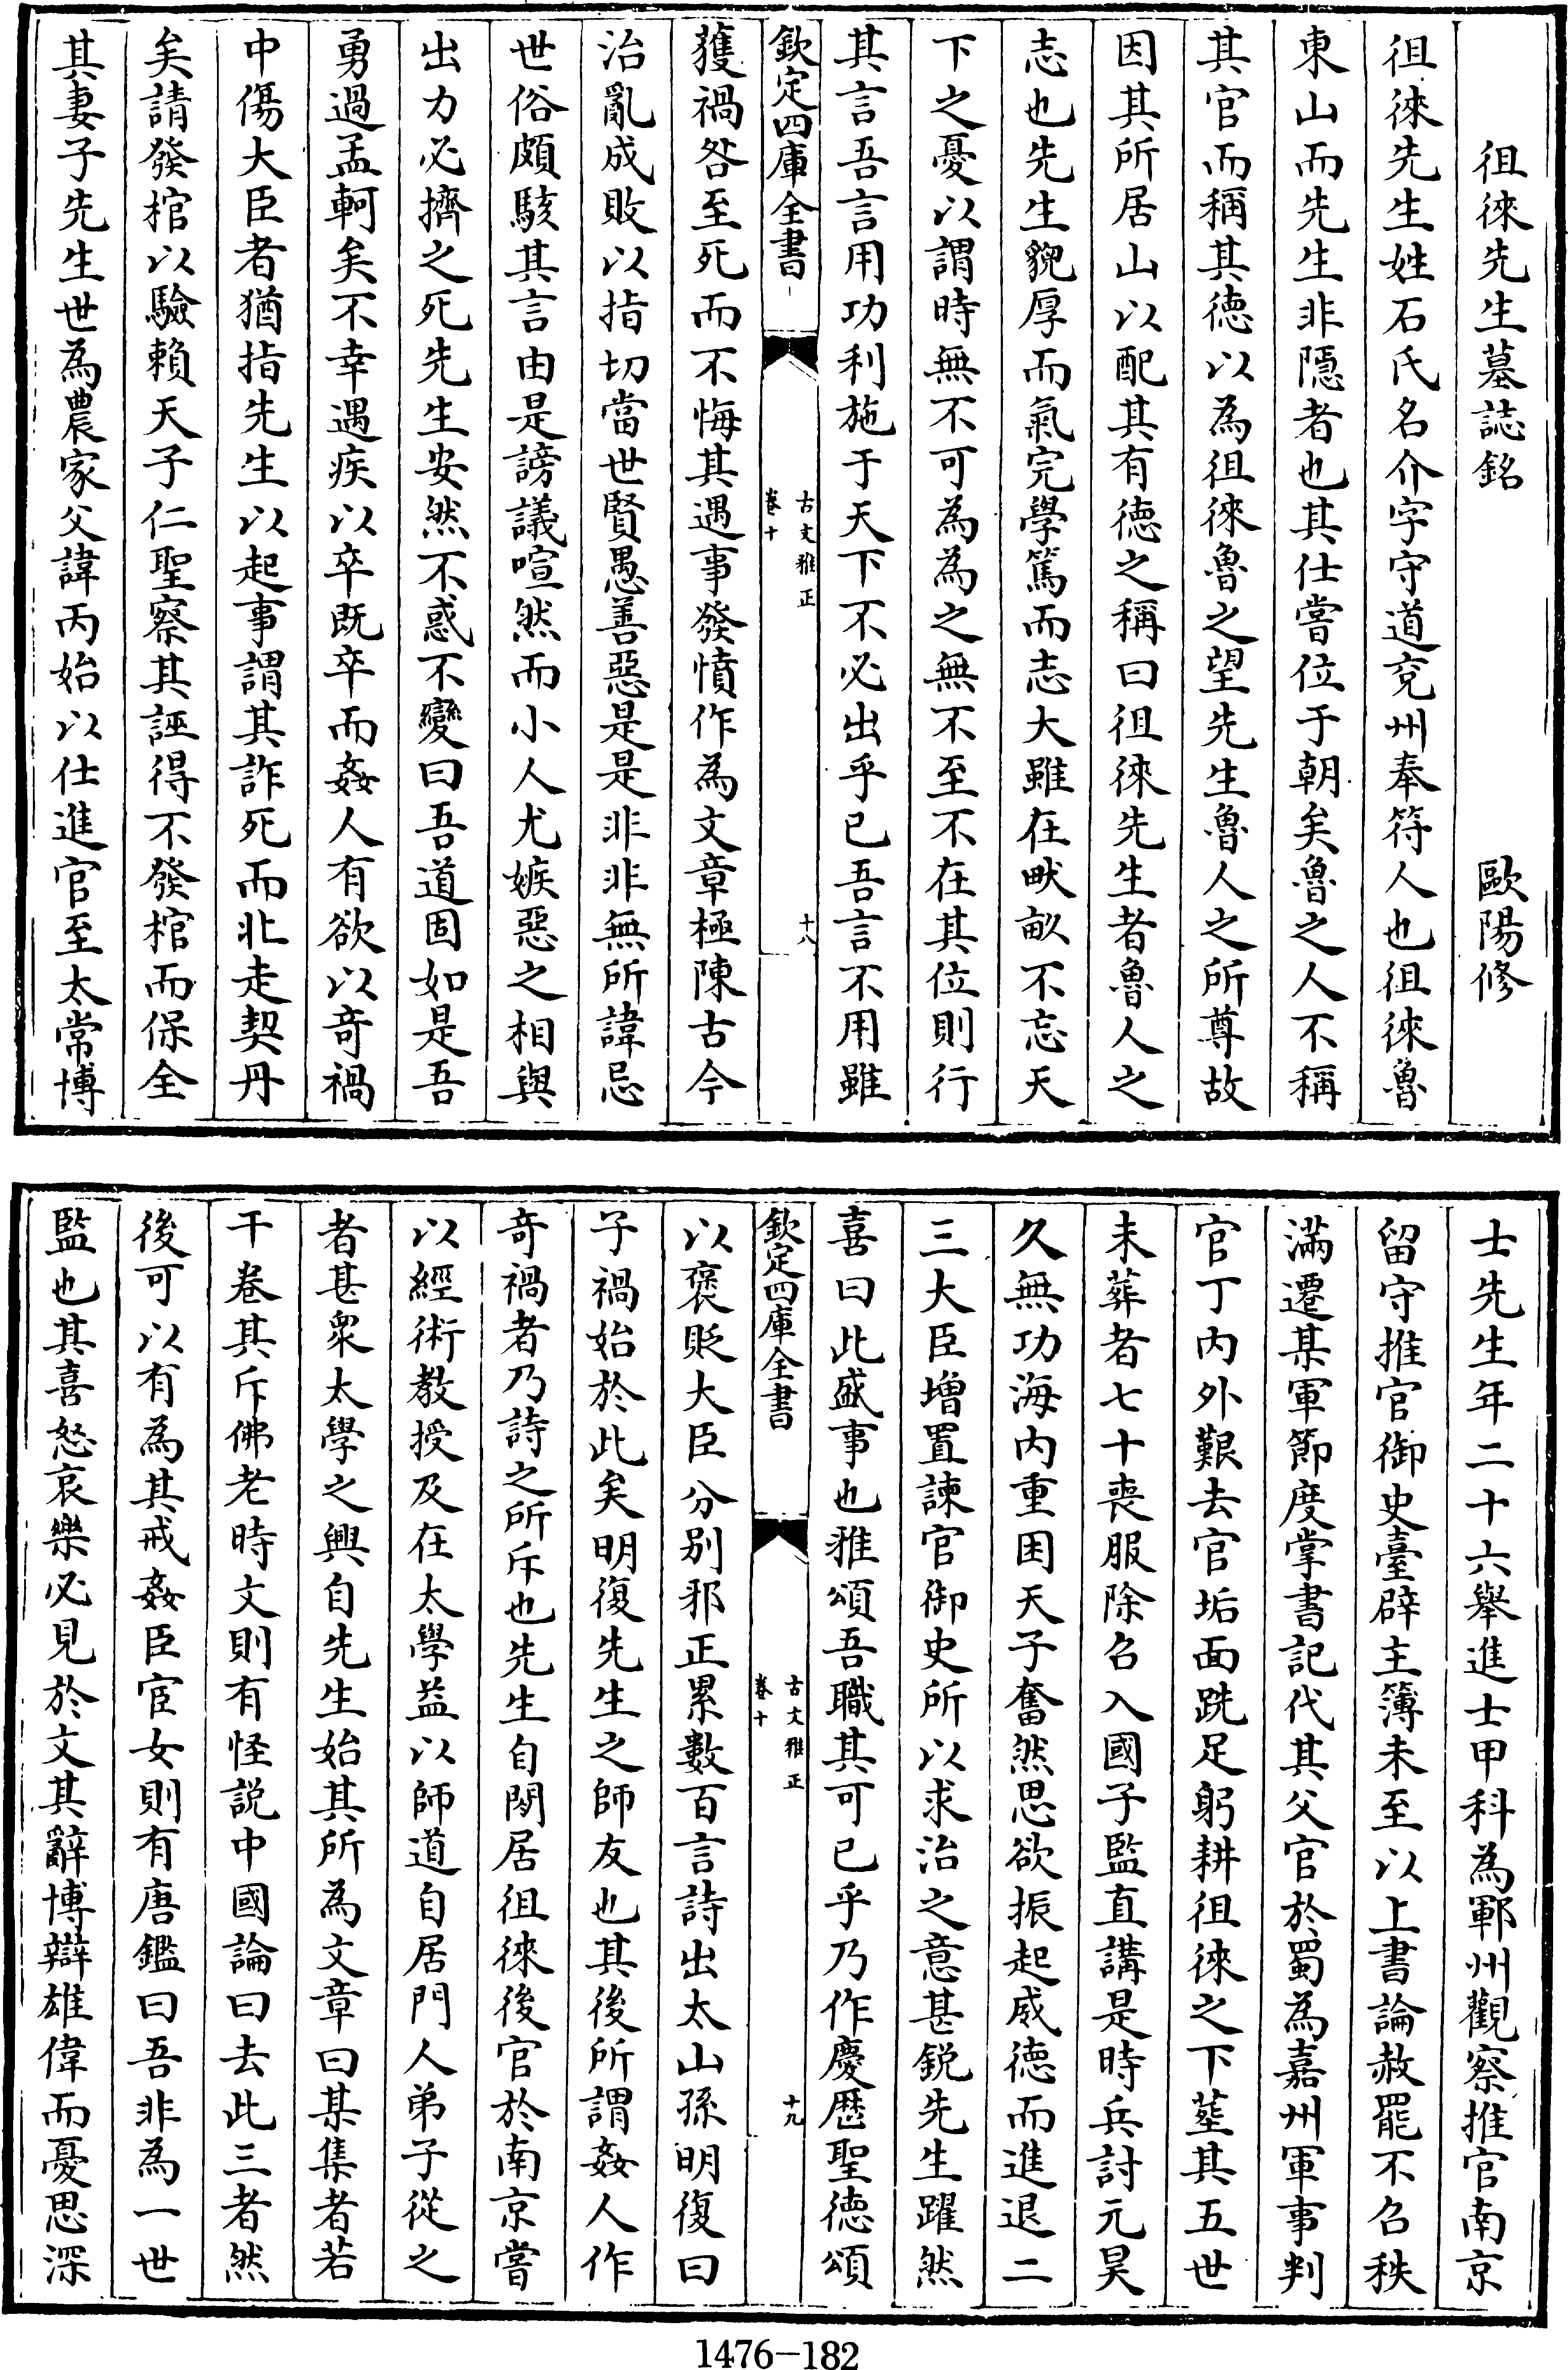 徂徠先生墓誌銘 歐陽修
徂徠先生姓石氏名介字守道兗州奉符人也徂徠魯
東山而先生非隱者也其仕嘗位于朝矣魯之人不稱
其官而稱其德以為徂徠魯之望先生魯人之所尊故
因其所居山以配其有德之稱曰徂徠先生者魯人之
志也先生貌厚而氣完學篤而志大雖在畎畝不忘天
下之憂以謂時無不可為為之無不至不在其位則行
其言吾言用功利施于天下不必出乎已吾言不用雖
欽定四庫全書
古文雅正
卷十
十八
獲禍咎至死而不悔其遇事發憤作為文章極陳古今
治亂成敗以指切當世賢愚善惡是是非非無所諱忌
世俗頗駭其言由是謗議喧然而小人尤嫉惡之相與
出力必擠之死先生安然不惑不變曰吾道固如是吾
勇過孟軻矣不幸遇疾以卒既卒而姦人有欲以奇禍
中傷大臣者猶指先生以起事謂其詐死而北走契丹
矣請發棺以驗賴天子仁聖察其誣得不發棺而保全
其妻子先生世為農家父諱丙始以仕進官至太常博
士先生年二十六舉進士甲科為鄆州觀察推官南京
留守推官御史臺辟主簿未至以上書論赦罷不召秩
滿遷某軍節度掌書記代其父官於蜀為嘉州軍事判
官丁內外艱去官垢面跣足躬耕徂徠之下塟其五世
未葬者七十喪服除召入國子監直講是時兵討元昊
久無功海內重困天子奮然思欲振起威德而進退二
三大臣增置諫官御史所以求治之意甚鋭先生躍然
喜曰此盛事也雅頌吾職其可已乎乃作慶歷聖德頌
欽定四庫全書
古文雅正
卷十
十九
以褒貶大臣分別邪正累數百言詩出太山孫明復曰
子禍始於此矣明復先生之師友也其後所謂姦人作
奇禍者乃詩之所斥也先生自閑居徂徠後官於南京嘗
以經術教授及在太學益以師道自居門人弟子從之
者甚衆太學之興自先生始其所為文章曰某集者若
干卷其斥佛老時文則有怪説中國論曰去此三者然
後可以有為其戒姦臣宦女則有唐鑑曰吾非為一世
監也其喜怒哀樂必見於文其辭博辯雄偉而憂思深
1476-182